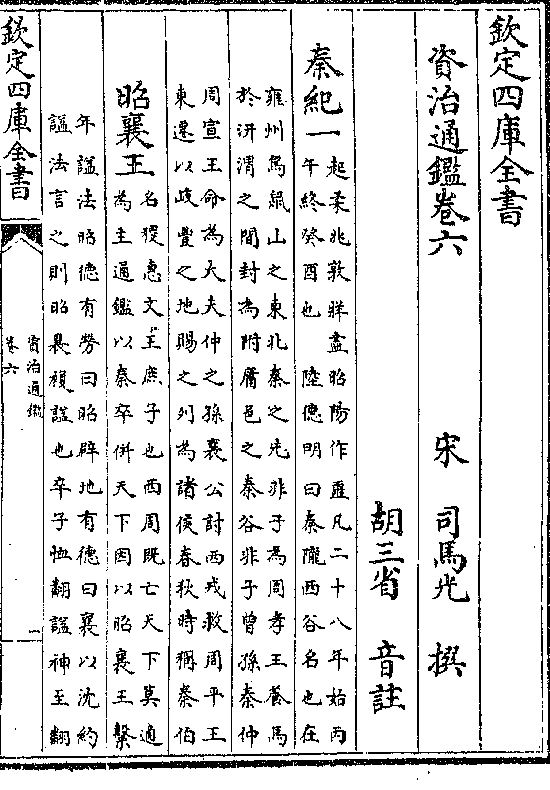 欽定四庫全書
資治通鑑卷六　宋　司馬光　撰
胡三省　音註
秦紀一
起柔兆敦牂盡昭陽作噩凡二十八年始丙
午終癸酉也　陸德明曰秦隴西谷名也在
雍州鳥鼠山之東北秦之先非子為周孝王養馬
於汧渭之間封為附庸邑之秦谷非子曾孫秦仲
周宣王命為大夫仲之孫襄公討西戎救周平王
東遷以岐豐之地賜之列為諸侯春秋時稱秦伯
昭襄王
名稷惠文王庶子也西周既亡天下莫適
為主通鑑以秦卒併天下因以昭襄王繫
年諡法昭德有勞曰昭辟地有德曰襄以沈約
諡法言之則昭襄複諡也卒子恤翻諡神至翻
欽定四庫全書
資治通鑑
卷六
一